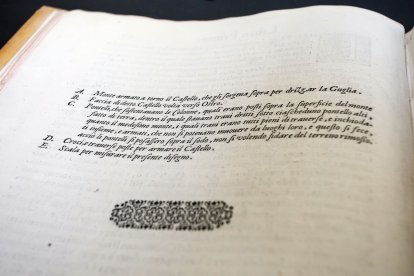 A. Monte armato a torno il Castello, che gli sorgeua sopra per drizzar la Guglia.
B. Faccia di detto Castello volta verso Ostro.
C. Pontelli, che sosteneuano le Colonne, quali erano posti sopra la superficie del monte
fatto di terra, dentro il quale stauano tanti dritti sotto ciascheduno pontello alti
quanto il medesimo monte, i quali erano tutti pieni di trauerse, e inchioda-
ti insieme, e armati, che non si poteuano muouere da luoghi loro, e questo si fece,
acciò le pontelli si posassero sopra il sodo, non si volendo fidare del terreno rimosso.
D. Croci a trauerso poste per armare il Castello.
E. Scala per misurare il presente disegno.